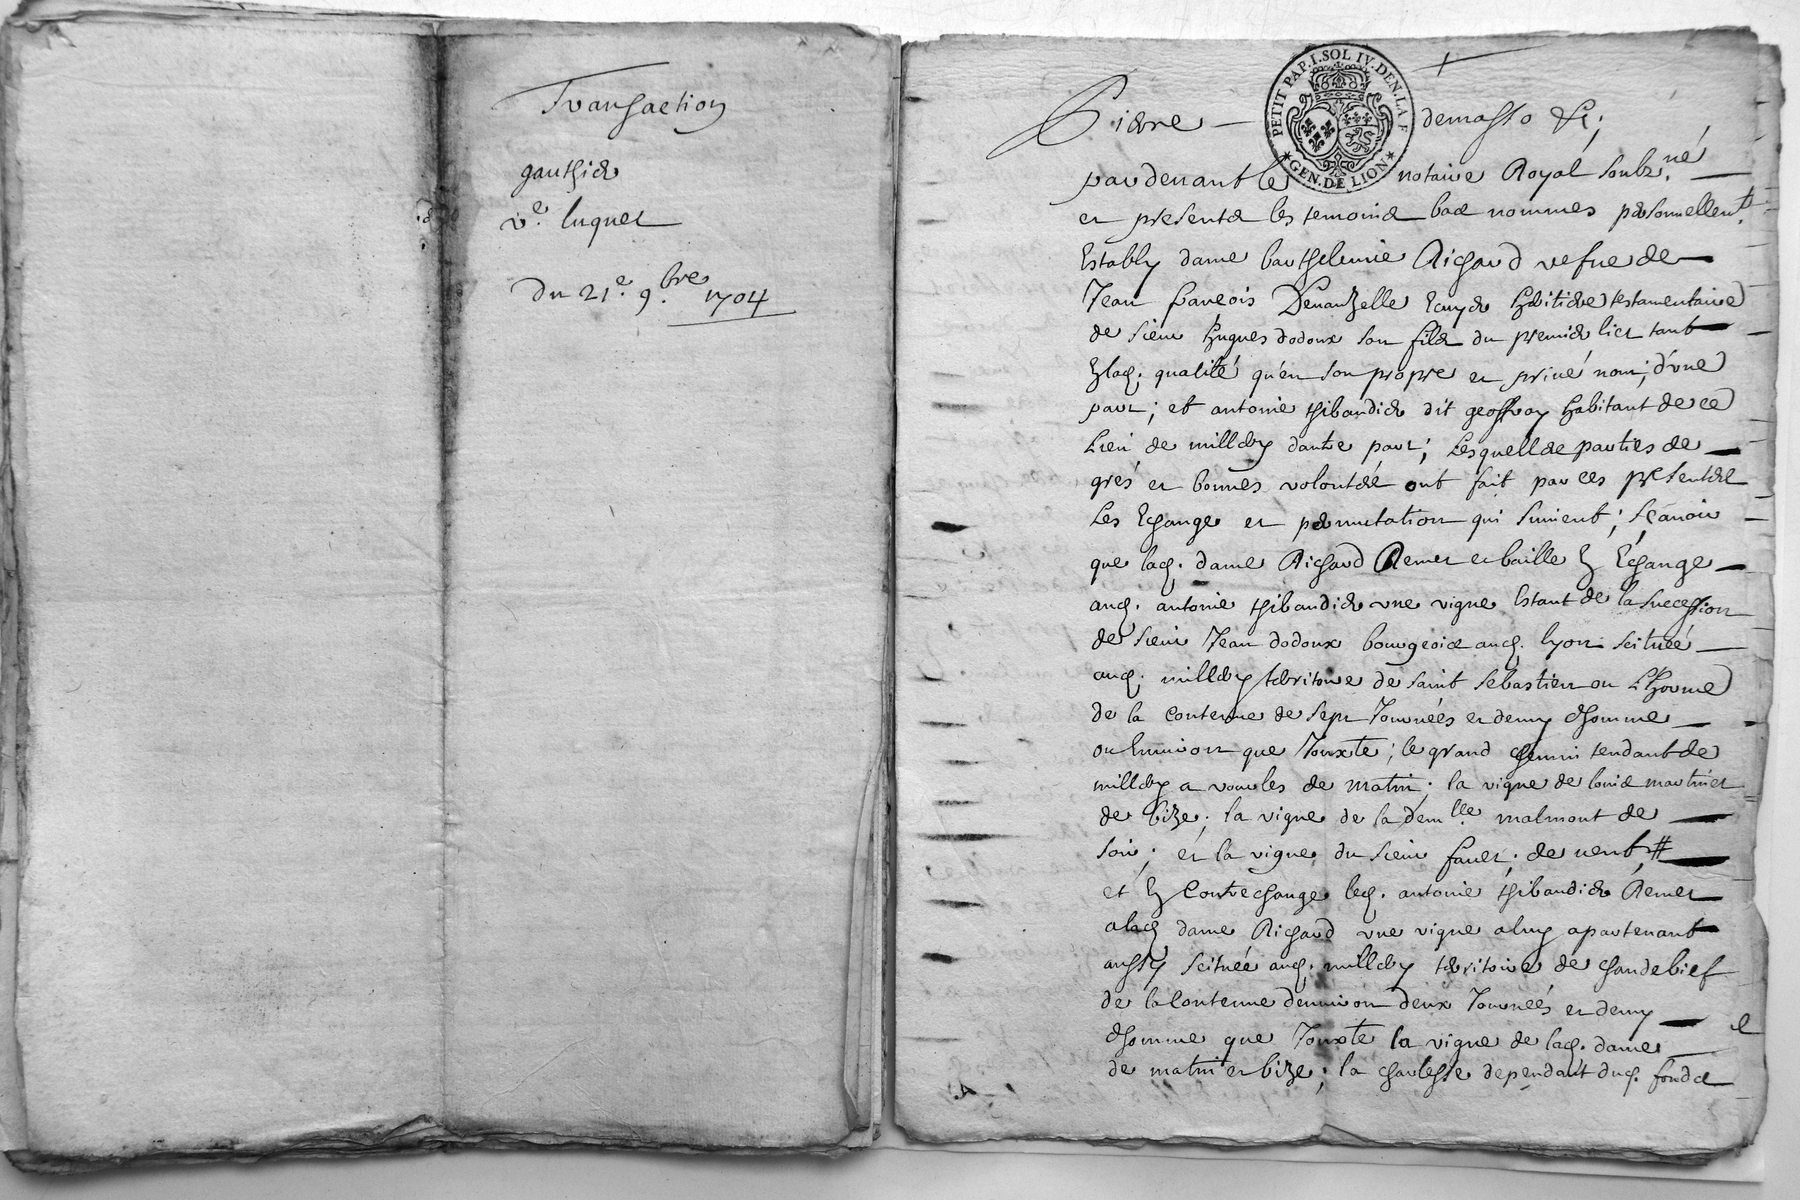 Transaction
gauthier
ve. luquet
Du 21e. 9.bre 1704
PETIT PAP. I. SOL IV. DEN. LA F
GEN. DE LION
Pierre demasso &c;
pardeuant le notaire Royal soubz.né
et presents les temoins bas nommes personnellemt.
Estably dame barthelemie Richard vefue de
Jean françois Escuyer heritiere testamentaire
de sieur hugues dodoux son fils du premier lict tant
En lad. qualité qu'en son propre et priué nom; d'vne
part; et antoine thibaudier dit geoffroy habitant de ce
Lieu de millery dautre part; Lesquelles parties de
grés et bonnes volontés ont fait par ces presentes
Les Echange et permutation qui suiuent; sçauoir
que lad. dame Richard Remet et baille En Echange
aud. antoine thibaudier vne vigne Estant de la succession
de sieur Jean dodoux bourgeois aud. lyon scituée
aud. millery territoire de saint sebastien ou Lhorme
de la contenue de sept Journées et demy dhomme
ou Enuiron que Jouxte; le grand chemin tendant de
millery a vourles de matin; la vigne de louis martinet
de bize; la vigne de la demlle malmont de
soir; et la vigne du sieur fauet; de uent, #
et En Contrechange led. antoine thibaudier Remet
a lad dame Richard vne vigne a luy apartenant
aussy scituée aud. millery territoire de chandebief
de la Contenue denuiron deux Journées et demy
dhomme que Jouxte la vigne de lad. dame
de matin et bize; la charlesse dependant dud. fonds